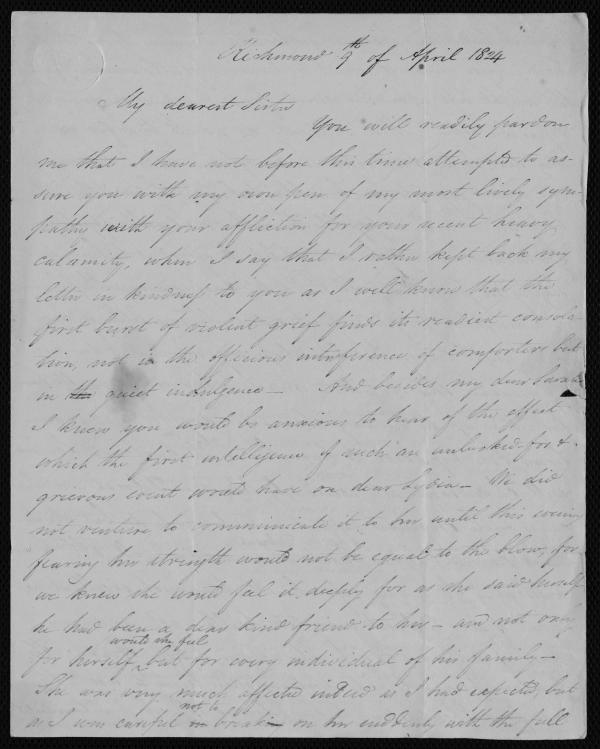 Richmond 9th of April 1824
My dearest Sister
You will readily pardon
me that I have not before this time attempted to as-
sure you with my own pen of my most lively sym-
pathy with your affliction for your recent heavy
calamity, when I say that I rather kept back my
letter in kindness to you as I well know that the
first burst of violent grief finds its readiest consola-
tion, not in the officious interference of comforters but
in the quiet indulgence — And besides my dear Sarah
I knew you would be anxious to hear of the effect
which the first intelligence of such an unlooked-for &
grievous event would have on dear Lydia — We did
not venture to communicate it to her until this evening
fearing her strength would not be equal to the blow, for
we knew she would feel it deeply for as she said herself
he had been a dear kind friend to her — and not only
for herself would she feel but for every individual of his family —
She was very much affected indeed as I had expected, but
as I was careful not to break on her suddenly with the full